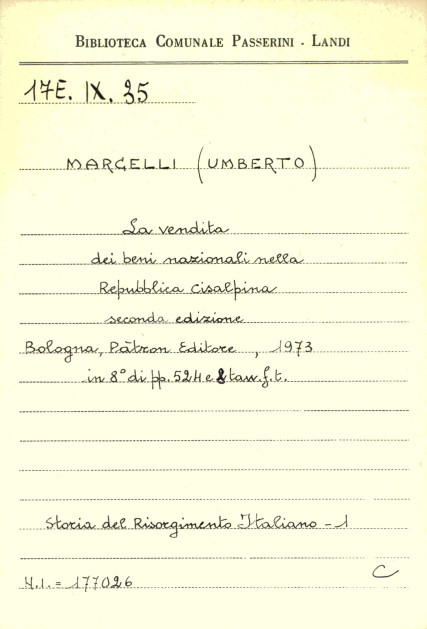 BIBLIOTECA COMUNALE PASSERINI - LANDI
17E. IX. 35
MARCELLI (UMBERTO)
La vendita
dei beni nazionali nella
Repubblica Cisalpina
seconda edizione
Bologna, Pàtron Editore , 1973
in 8° di pp. 524 e 8 tav. f. t.
Storia del Risorgimento Italiano - 1
N.I. = 177026
C